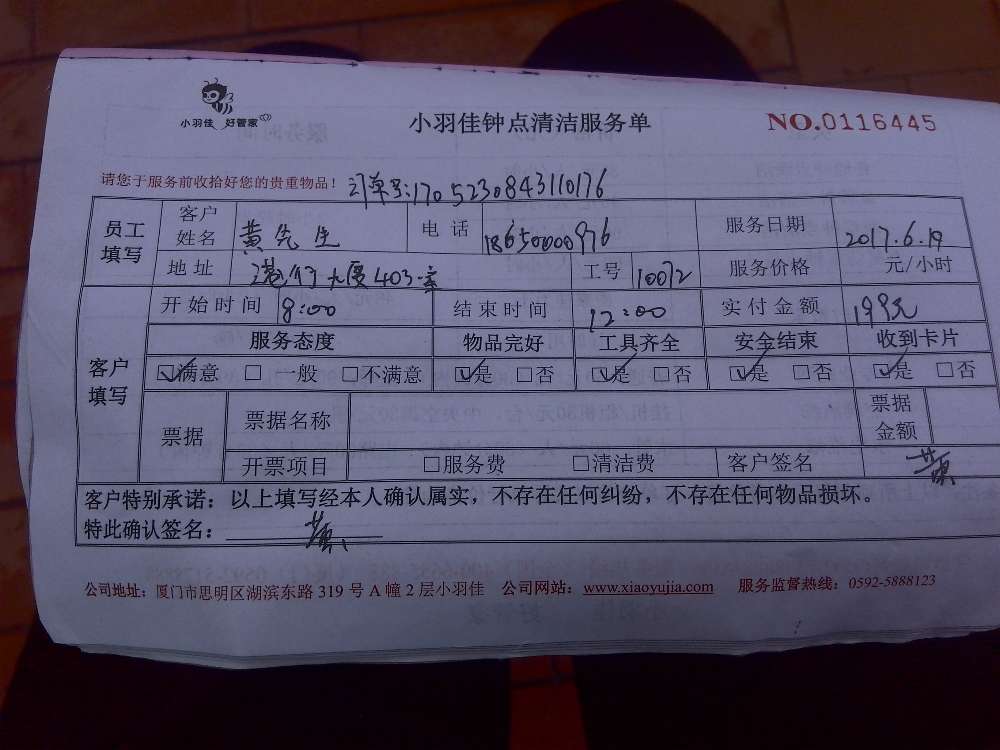 小羽佳 好管家
小羽佳钟点清洁服务单
NO.0116445
请您于服务前收拾好您的贵重物品！
订单号:1705230843110176
员工填写 客户姓名 黄先生 电话 18650000976 服务日期 2017.6.19
地址 403室 工号 10072 服务价格 元/小时
客户填写 开始时间 8:00 结束时间 12:00 实付金额
服务态度 物品完好 工具齐全 安全结束 收到卡片
☑满意 □一般 □不满意 ☑是 □否 ☑是 □否 ☑是 □否 ☑是 □否
票据 票据名称 票据金额
开票项目 □服务费 □清洁费 客户签名 黄
客户特别承诺：以上填写经本人确认属实，不存在任何纠纷，不存在任何物品损坏。
特此确认签名： 黄
公司地址：厦门市思明区湖滨东路 319 号 A 幢 2 层小羽佳 公司网站：www.xiaoyujia.com 服务监督热线：0592-5888123